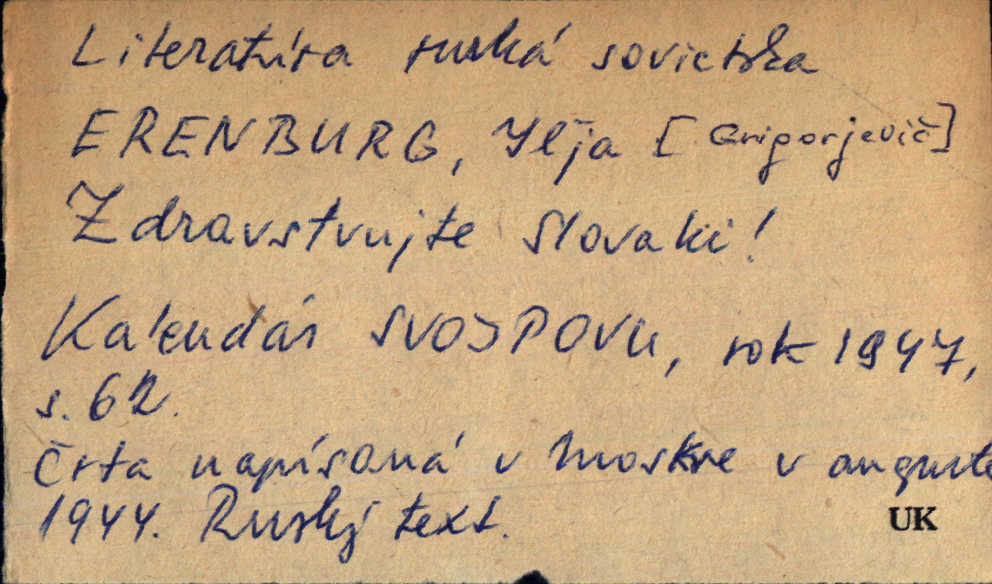 Literatúra ruská sovietska
ERENBURG, Iľja [Grigorjevič]
Zdravstvujte Slovaki!
Kalendár SVOJPOVu, rok 1947,
s. 62.
Črta napísaná v Moskve v auguste
1944. Ruský text.
UK